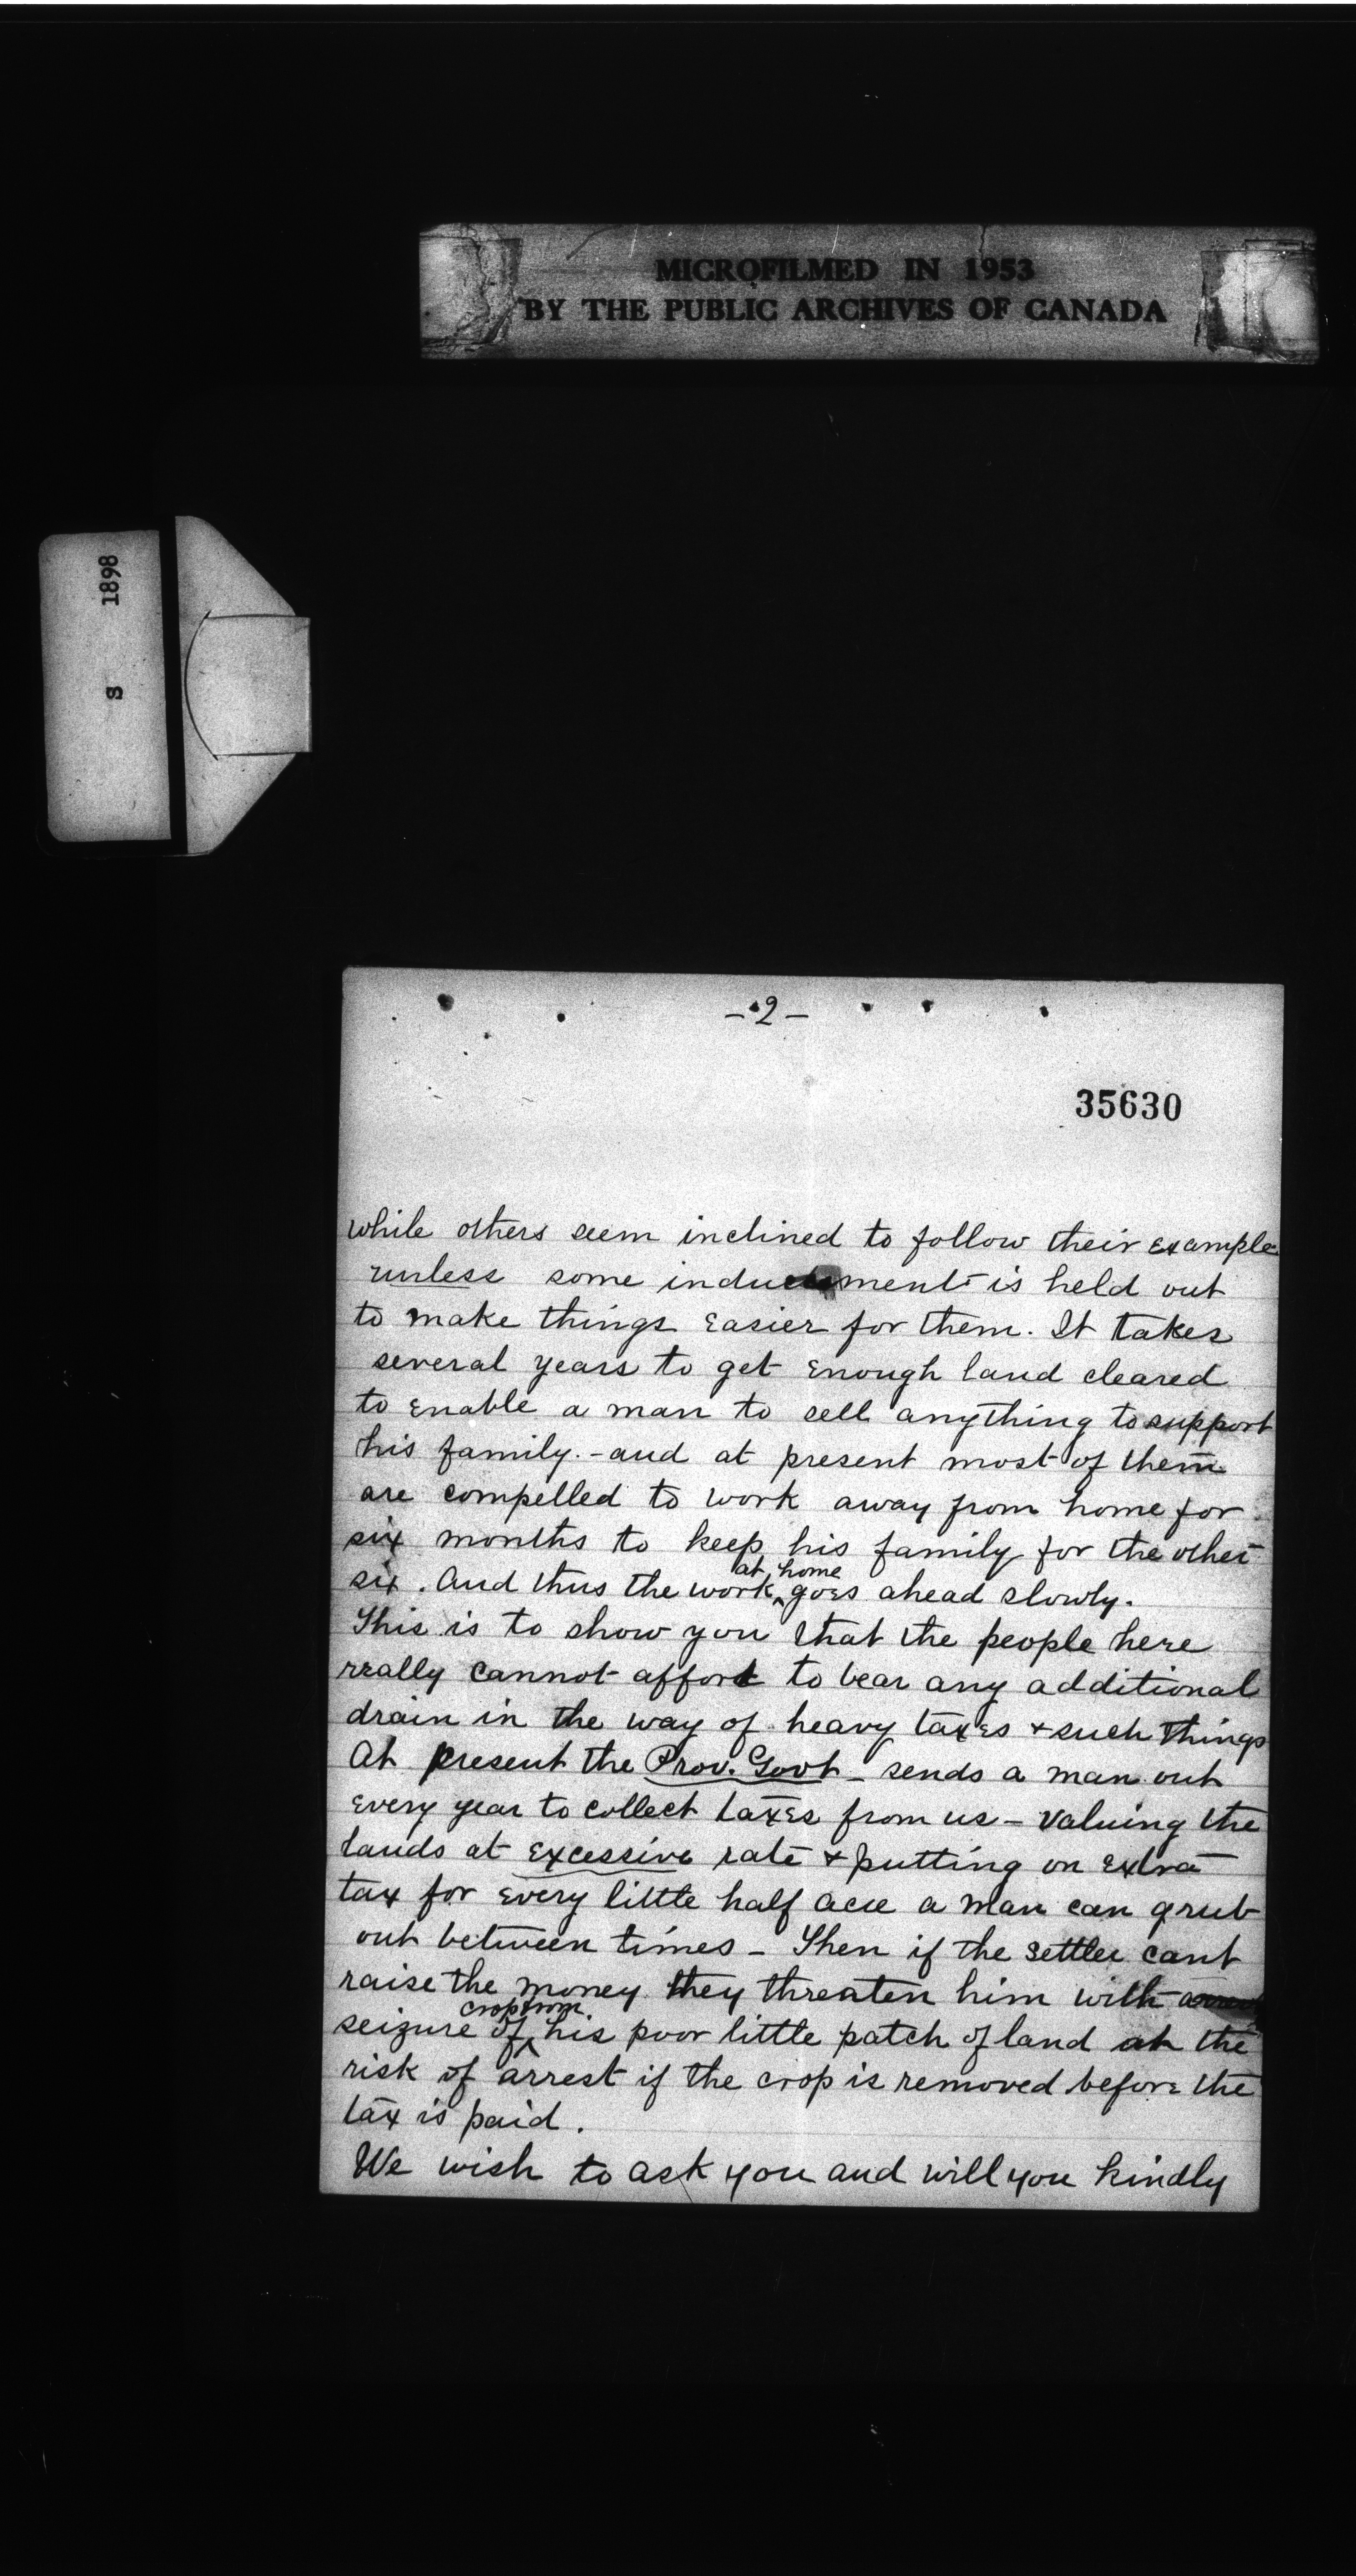 MICROFILMED IN 1953
BY THE PUBLIC ARCHIVES OF CANADA
S 1898
- 2 -
35630
while others seem inclined to follow their example
unless some inducement is held out
to make things easier for them. It takes
several years to get enough land cleared
to enable a man to sell anything to support
his family. - and at present most of them
are compelled to work away from home for
six months to keep his family for the other
six. And thus the work at home goes ahead slowly.
This is to show you that the people here
really cannot afford to bear any additional
drain in the way of heavy taxes & such things
At present the Prov. Govt - sends a man out
every year to collect taxes from us - valuing the
lands at excessive rate & putting on extra
tax for every little half acre a man can grub
out between times - Then if the settler cant
raise the money they threaten him with
seizure of crop from his poor little patch of land at the
risk of arrest if the crop is removed before the
tax is paid.
We wish to ask you and will you kindly